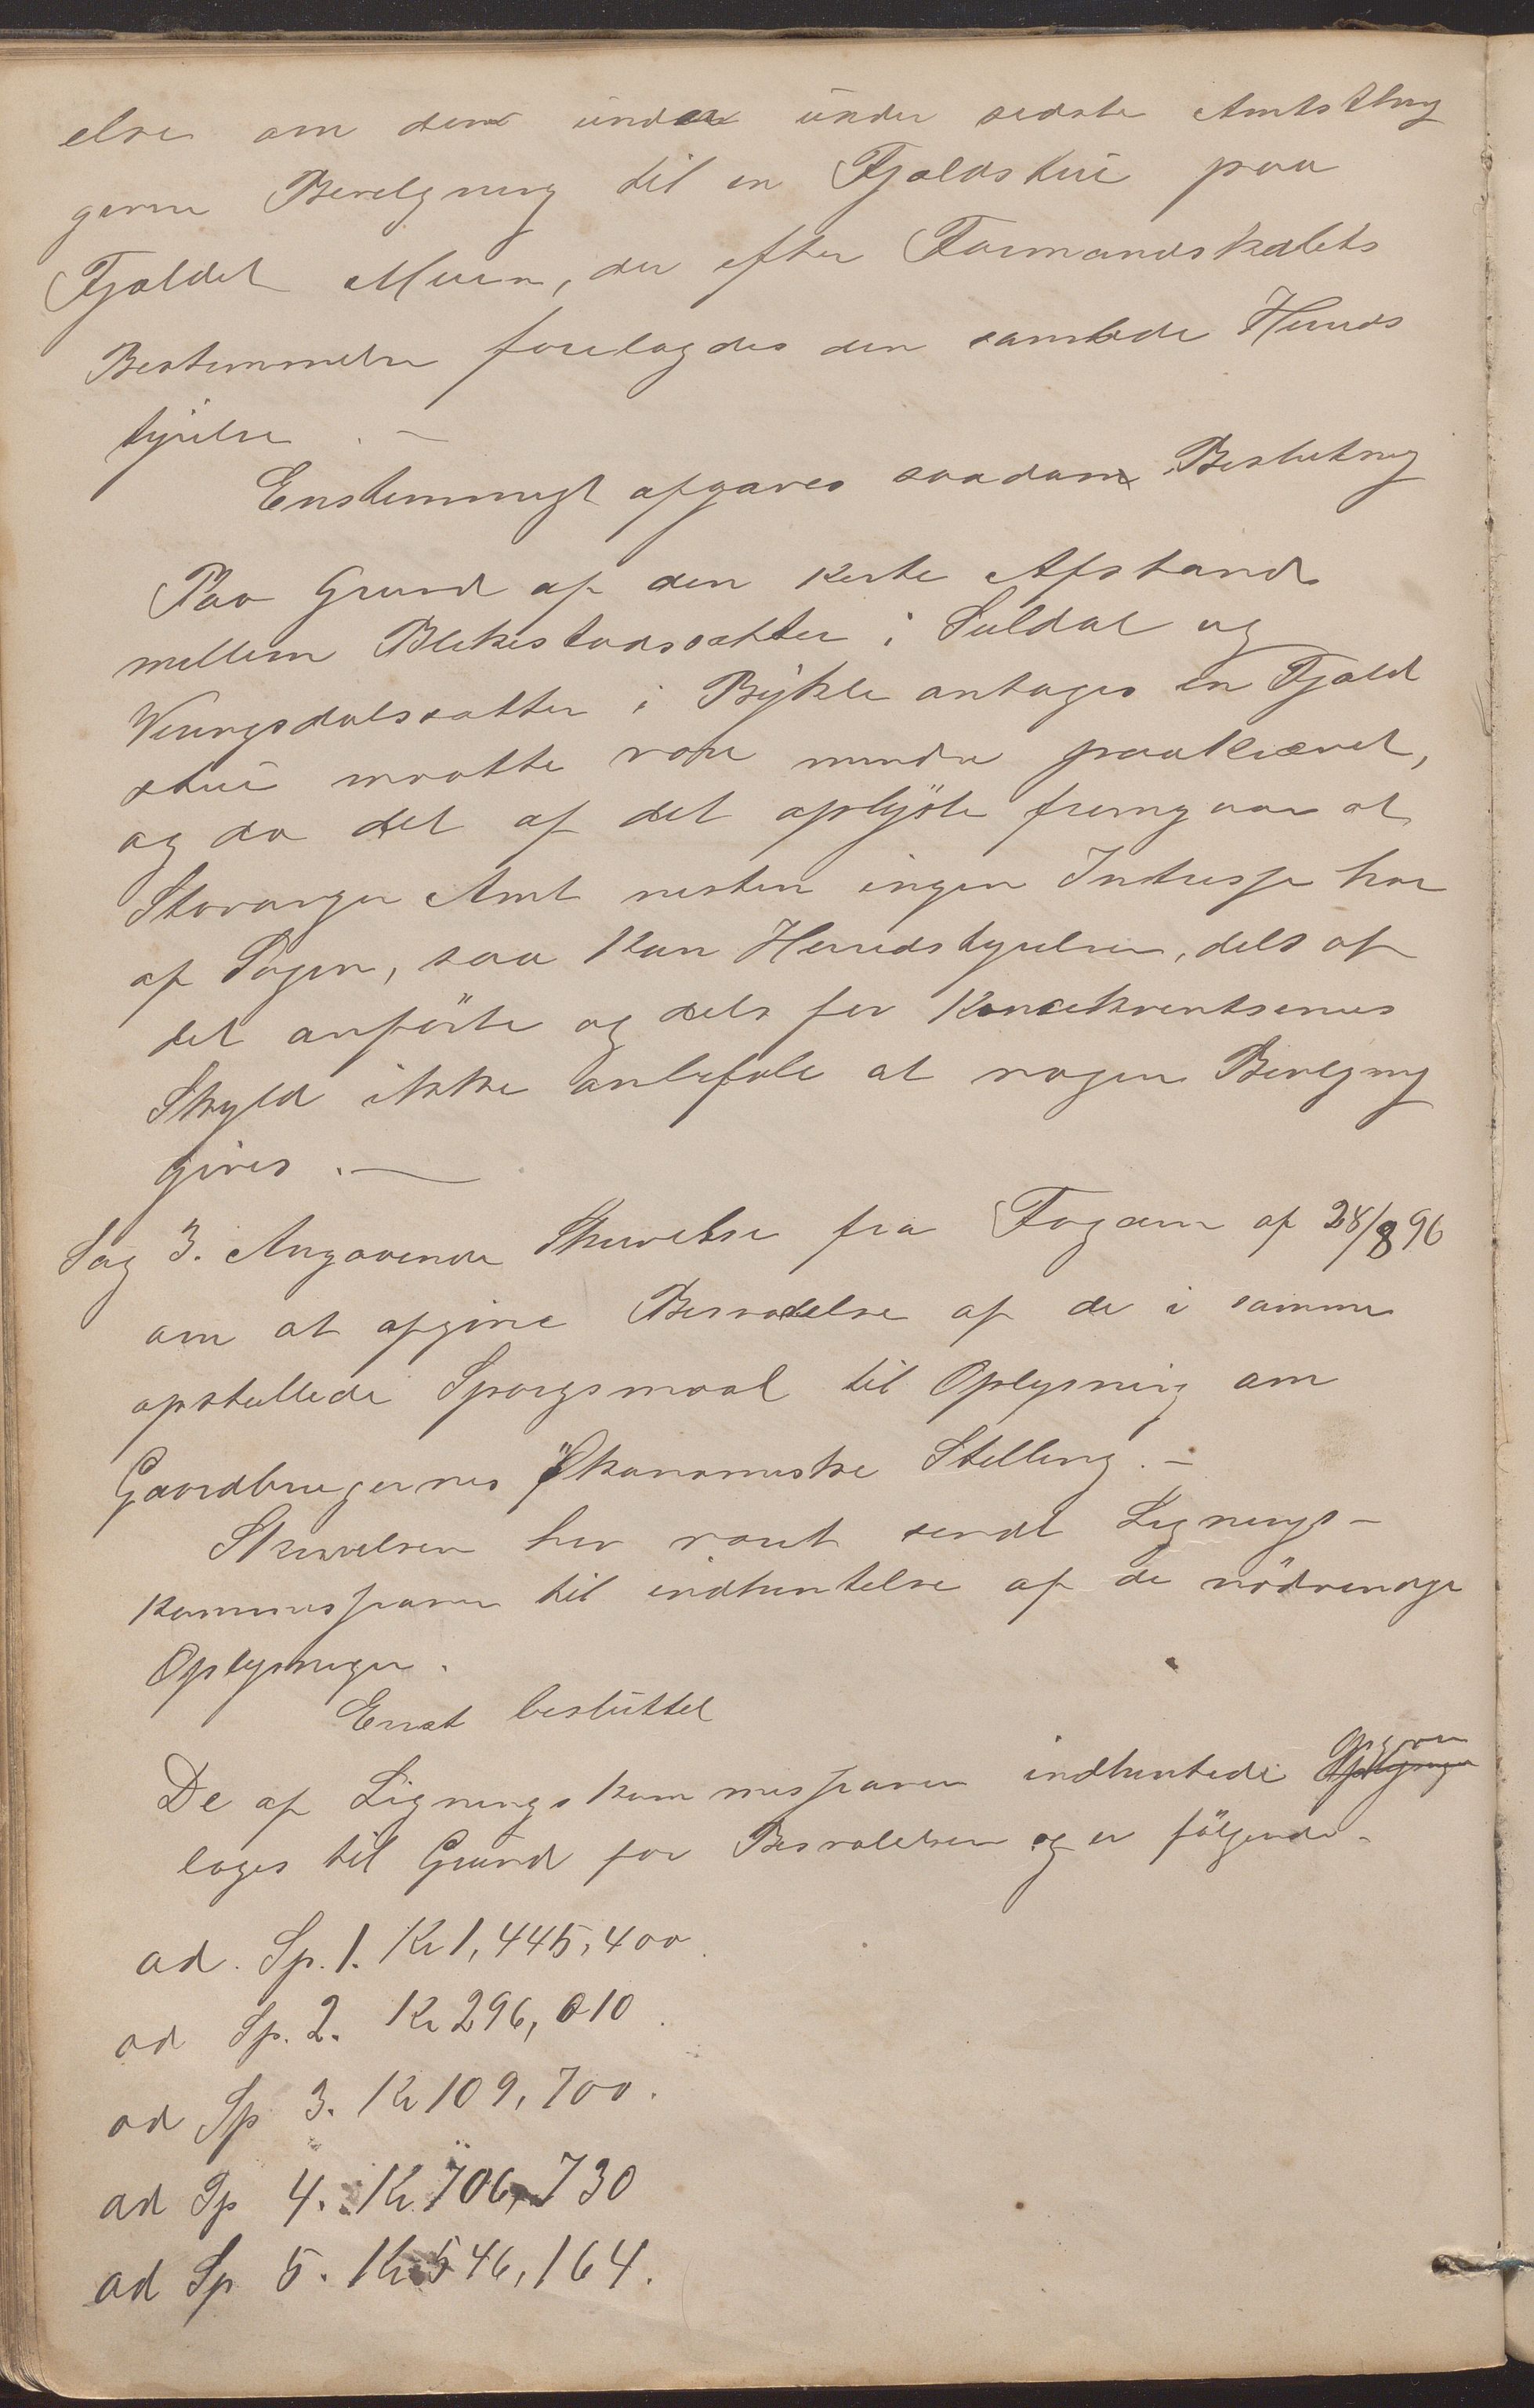 else om den under under sidste Amtsthing
givne Bevilgning til en Fjeldstue paa
Fjeldet Muen, der efter Formandskabets
Bestemmelse forelagdes den samlede Herreds
styrelse. –
Enstemmigt afgaves saadan Beslutning
Paa Grund af den korte Afstand
mellem Blekestadsætter i Suldal og
Vringsdalssætter i Bykle antages en Fjeld
stue maatte være mindre paakrævet,
og da det af det oplyste fremgaar at
Stavanger Amt nesten ingen Intresse har
af Sagen, saa kan Herredstyrelsen, dels af
det anførte og dels for Konsekventsernes
Skyld ikke anbefale at nogen Bevilgning
gives. –
Sag 3. Angaaende Skrivelse fra Fogden af 28/8 96
om at afgive Besvarelse af de i samme
opstillede Spørgsmaal til Oplysning om
Gaardbrugernes Økonomiske Stilling. –
Skrivelsen har vært sendt Lignings-
kommissionen til indhentelse af de nødvendige
Oplysninger.
Enst besluttet
De af Ligningskommissionen indhentede Opgaver
lages til Grund for Besvarelsen og er følgende.
ad. Sp. 1. Kr 1,445,400.
ad Sp. 2. Kr 296,010.
ad Sp 3. Kr 109,700.
ad Sp 4. Kr 706,730
ad Sp 5. Kr 546,164.